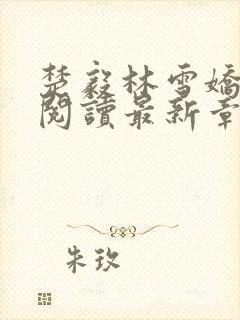 楚毅林雪嬌
閱讀最新章
朱玫